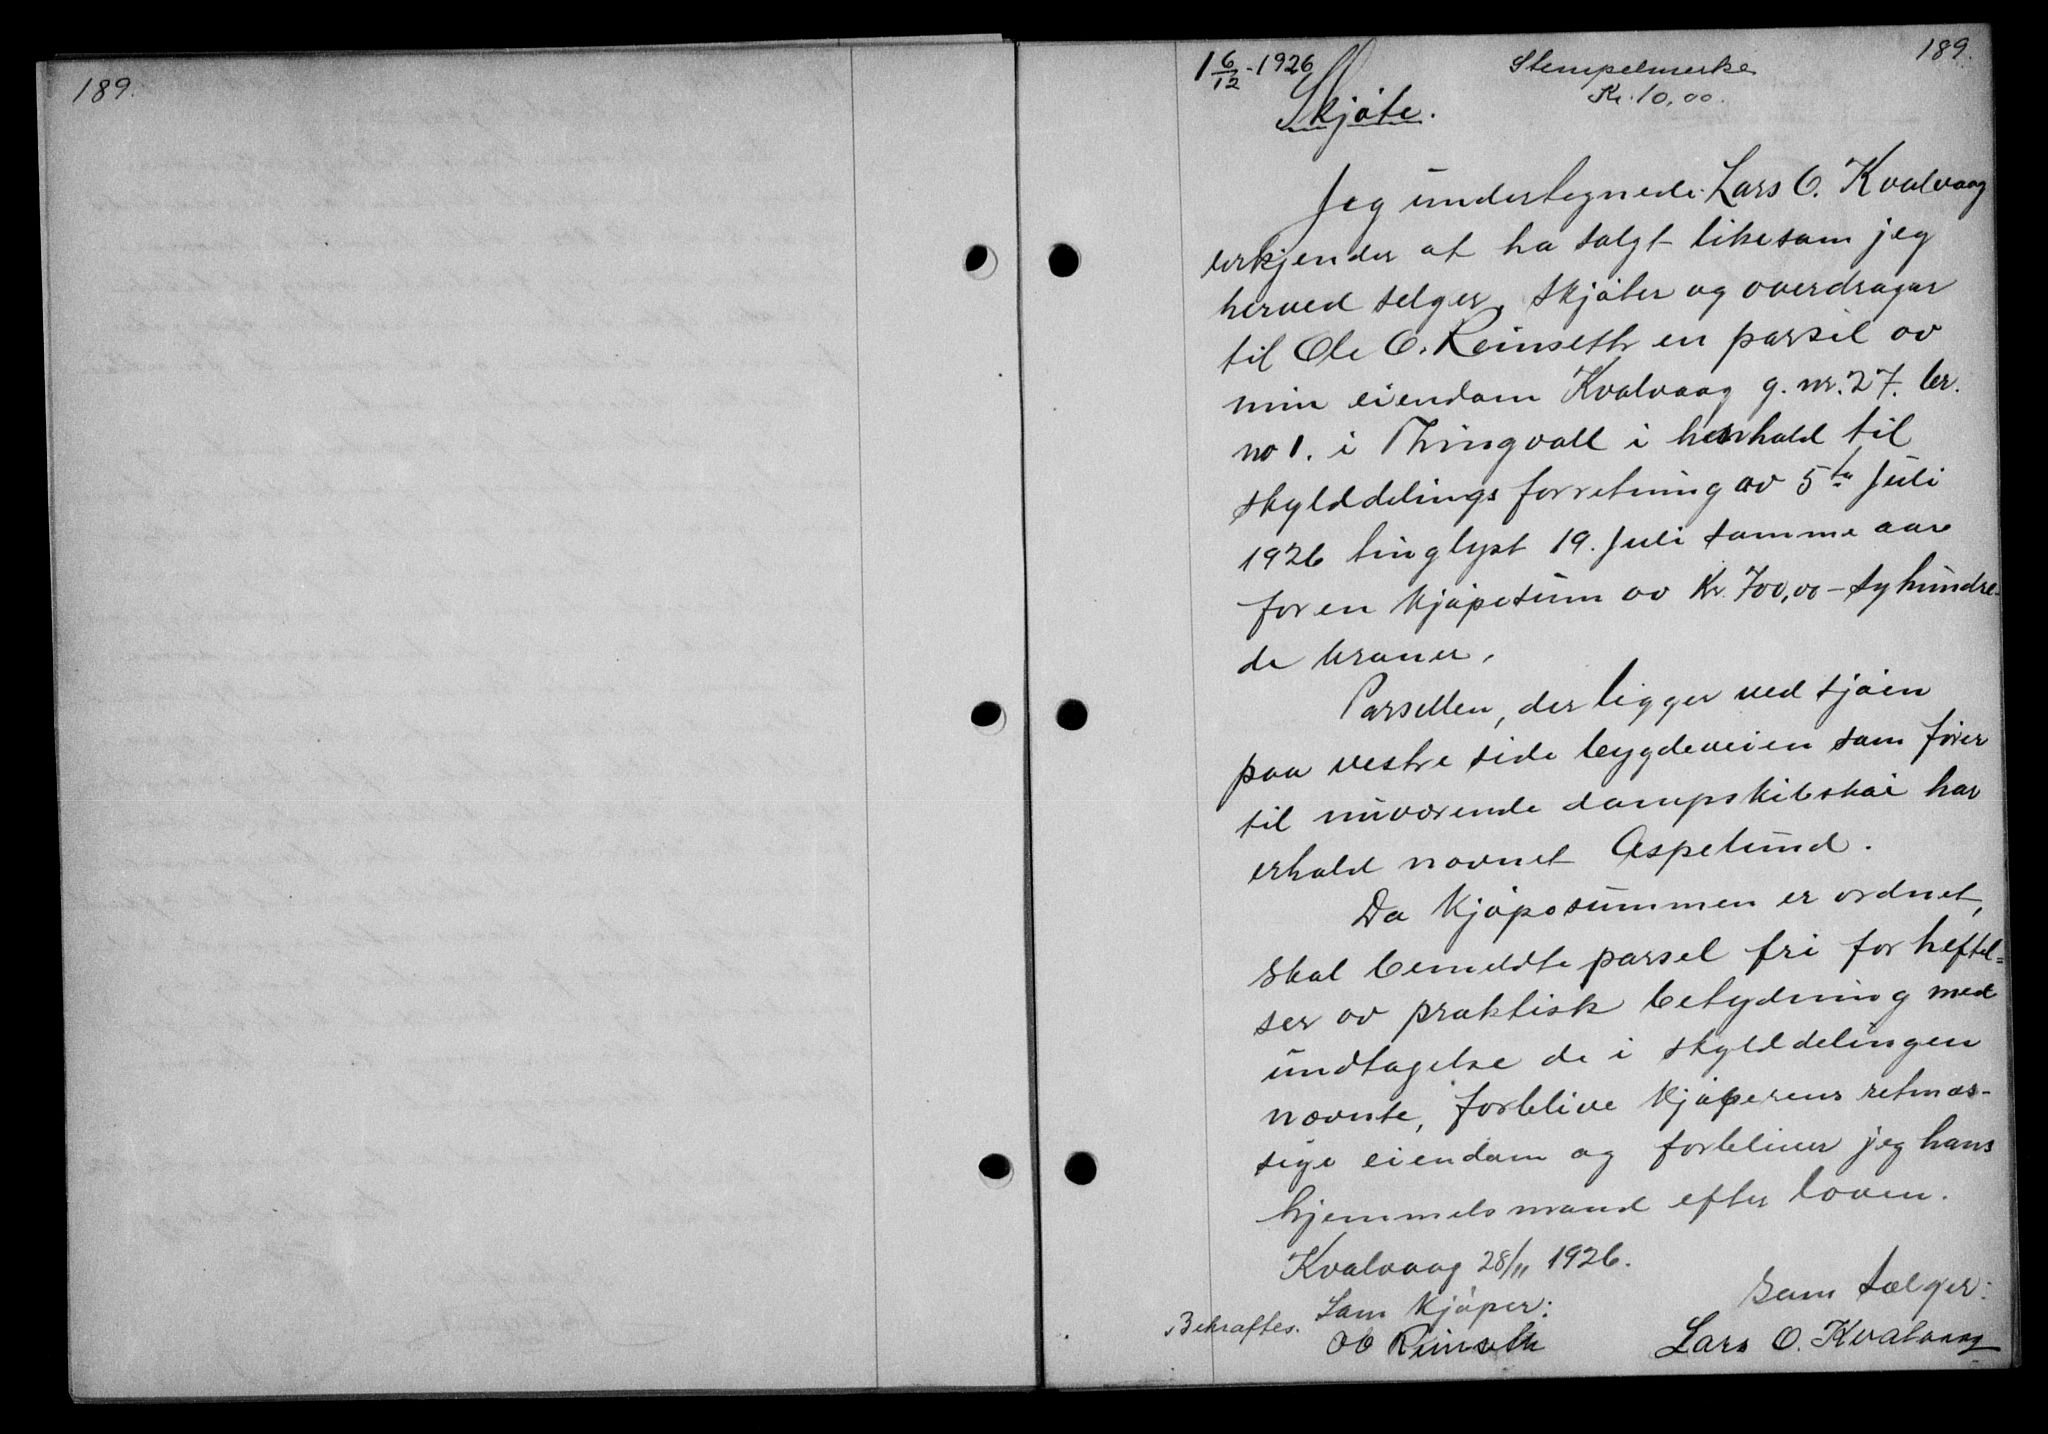 189.
189.
1 6/12-1926
Stempelmerke
Kr. 10,00.
Skjøte.
Jeg undertegnede Lars O. Kvalvaag
erkjender at ha solgt likesom jeg
herved selger, skjøter og overdrager
til Ole O. Reinseth en parsel av
min eiendom Kvalvaag g. nr. 27. br.
no 1. i Thingvoll i henhold til
skylddelingsforretning av 5te Juli
1926 tinglyst 19. Juli samme aar
for en kjøpesum av Kr. 700,00 - syhundre-
de kroner.
Parsellen, der ligger ved sjøen
paa vestre side bygdeveien som fører
til nuværende dampskibskai har
erhold navnet Aspelund.
Da kjøpesummen er ordnet,
skal bemeldte parsel fri for heftel=
ser av praktisk betydning med
undtagelse de i skylddelingen
nævnte, forblive kjøperens retmæs-
sige eiendom og forbliver jeg hans
hjemmelsmand efter loven.
Kvalvaag 28/11 1926.
Som sælger:
Som kjøper:
Bekræftes.
OO Reinseth
Lars O. Kvalvaag